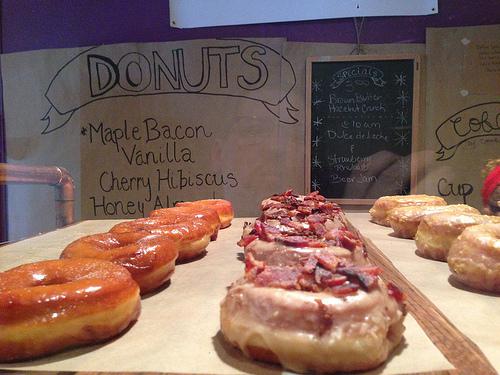 DONUTS
*Maple Bacon
Vanilla
Cherry Hibiscus
Honey
Specials
Brown Butter
Hazelnut Crunch
10 am
Dulce de leche
&
Strawberry
Rhubarb
Beer Jam
Cup